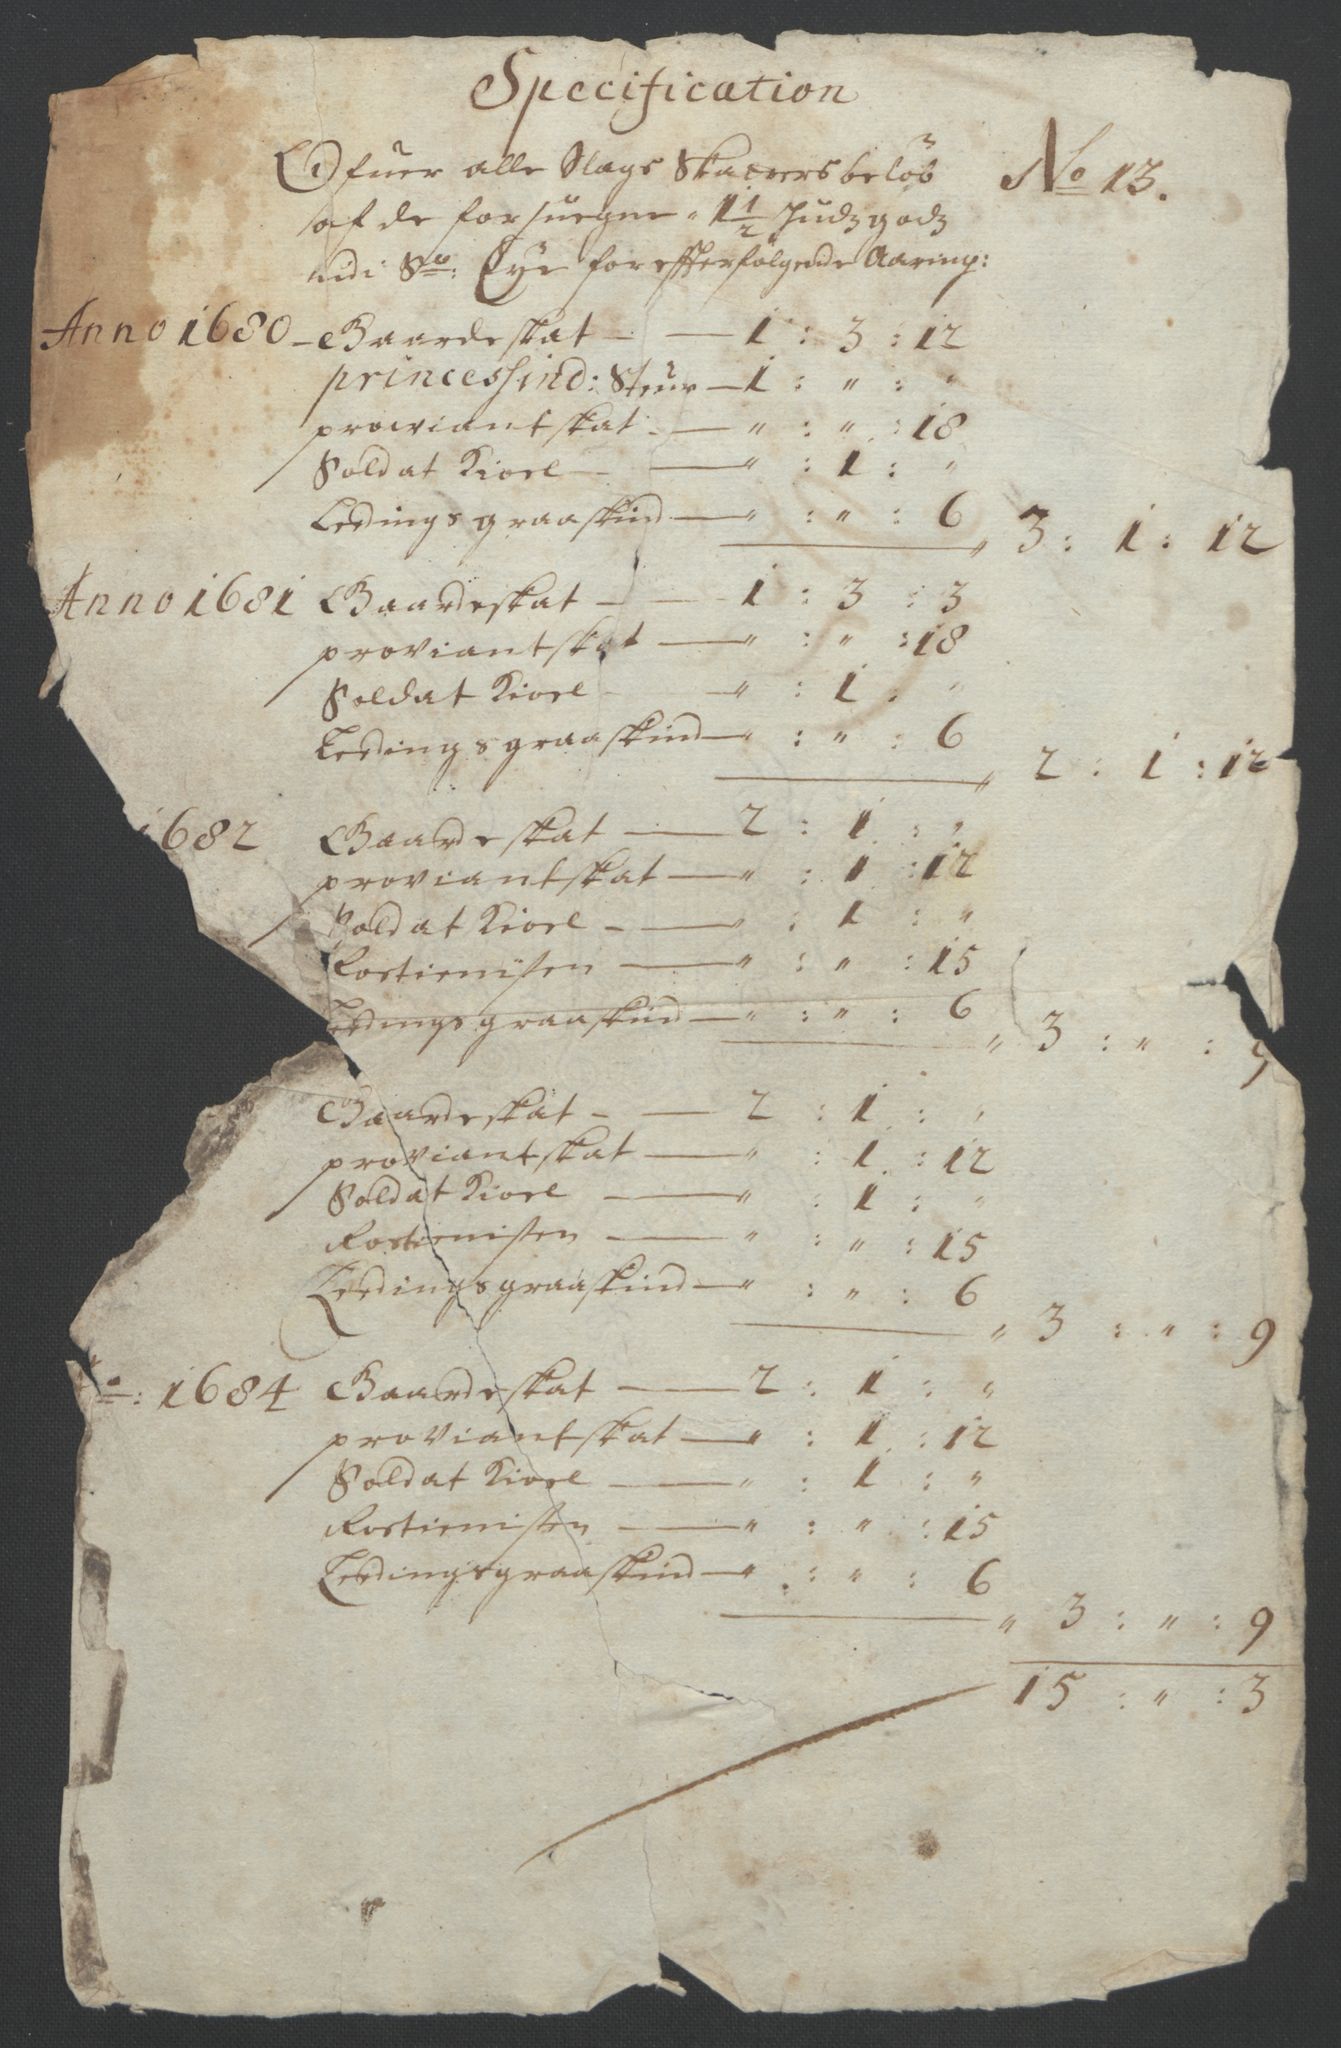 Specification
Ofuer alle Slags Skatters beløb No 13.
af de forsuegne 1 1/2 Judz godz
udi Eye for effterfølgende Aaring:
Anno 1680 - Gaardeskat — 1 : 3 : 12
princessind: Steur — 1 : " : "
prowiantskat — " : " : 18
Soldat Kioel — " : 1 : "
Ledings graaskind — " : " : 6 " 3 : 1 : 12
Anno 1681 Gaardeskat — 1 : 3 : 3
proviantskat — " : " : 18
Soldat Kioel — " : 1 : "
Ledings graaskind — " : " : 6 " 2 : 1 : 12
1682 Gaardeskat — 2 : 1 : "
proviantskat — " : 1 : 12
Soldat Kioel — " : 1 : "
Rostieniſten — " : " : 15
Ledings graaskind — " : " : 6 " 3 : " : 9
Gaardeskat — 2 : 1 : "
proviantskat — " : 1 : 12
Soldat Kioel — " : 1 : "
Rostieniſten — " : " : 15
Ledings graaskind — " : " : 6 " 3 : " : 9
o: 1684 Gaardeskat — 2 : 1 : "
proviantskat — " : 1 : 12
Soldat Kioel — " : 1 : "
Rostieniſten — " : " : 15
Ledings graaskind — " : " : 6 " 3 : " : 9
15 : " : 3